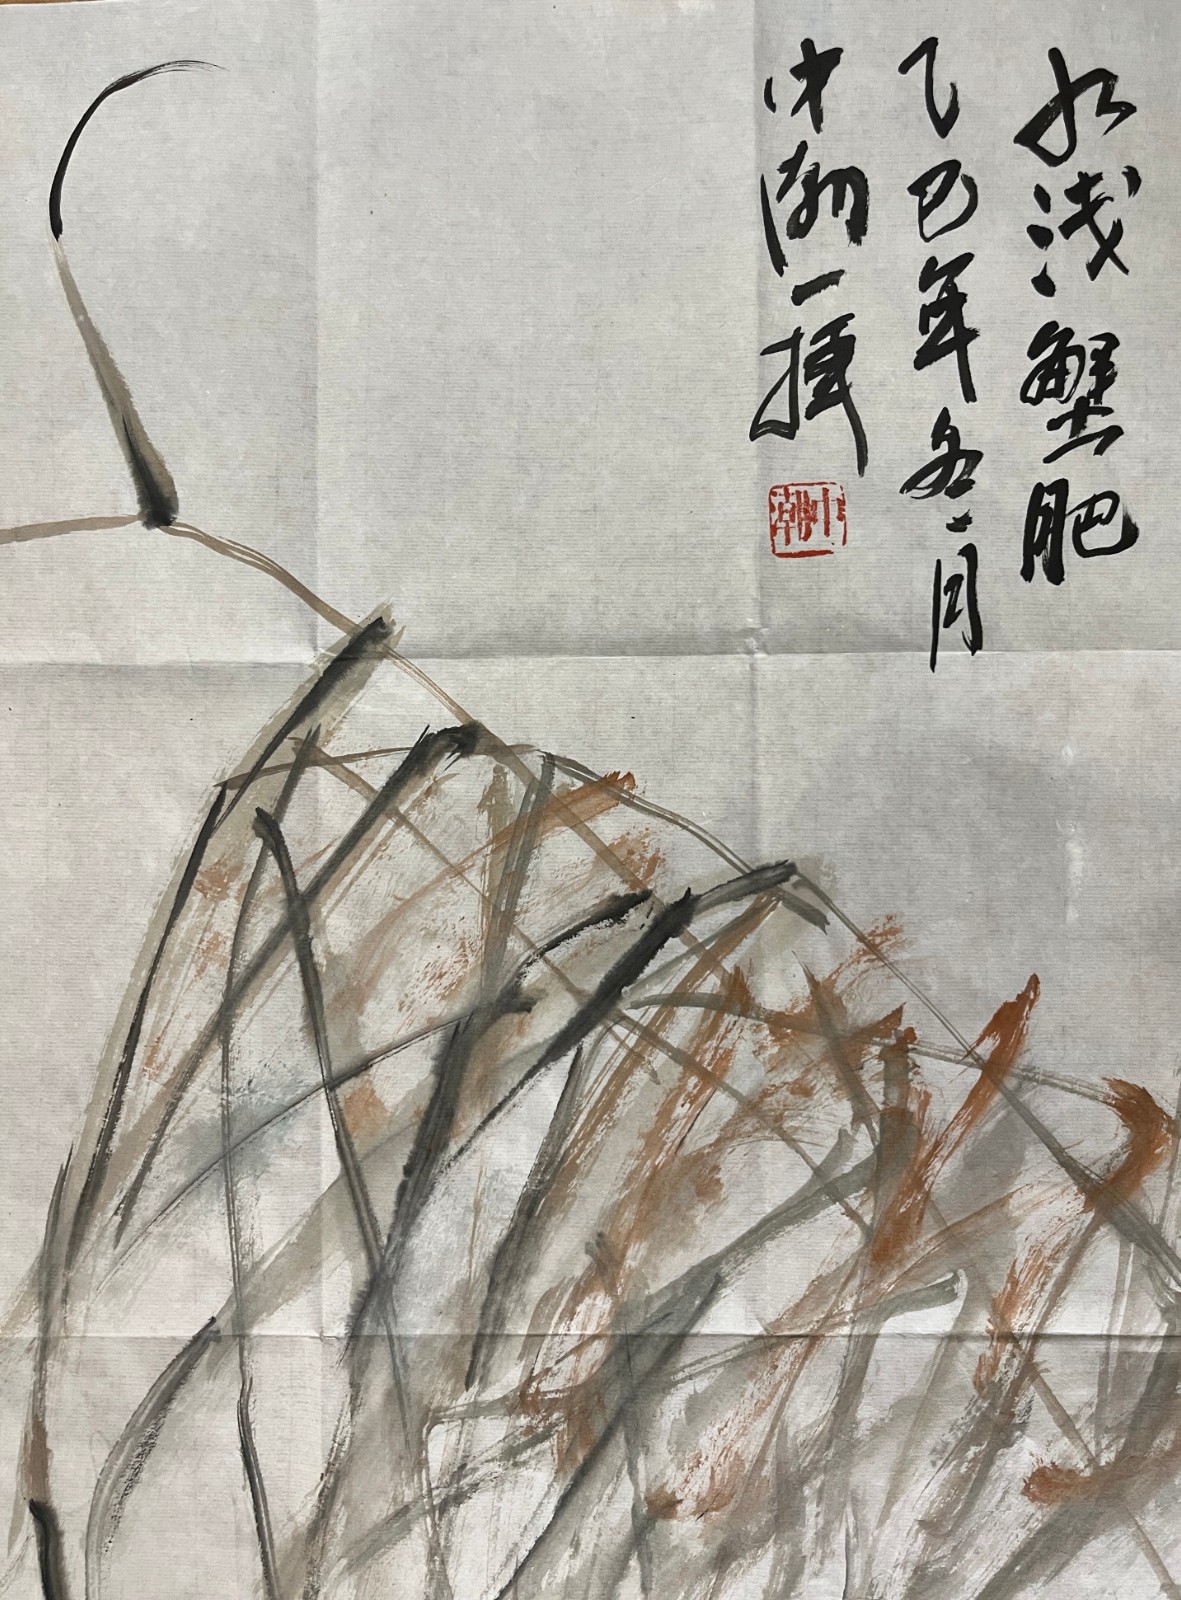 水浅蟹肥
乙巳年冬月
中潮一挥
中潮